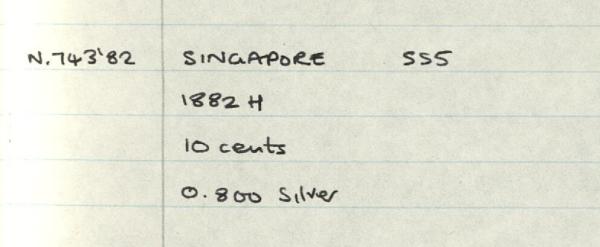 N.743'82 SINGAPORE SS5
1882 H
10 cents
0.800 Silver